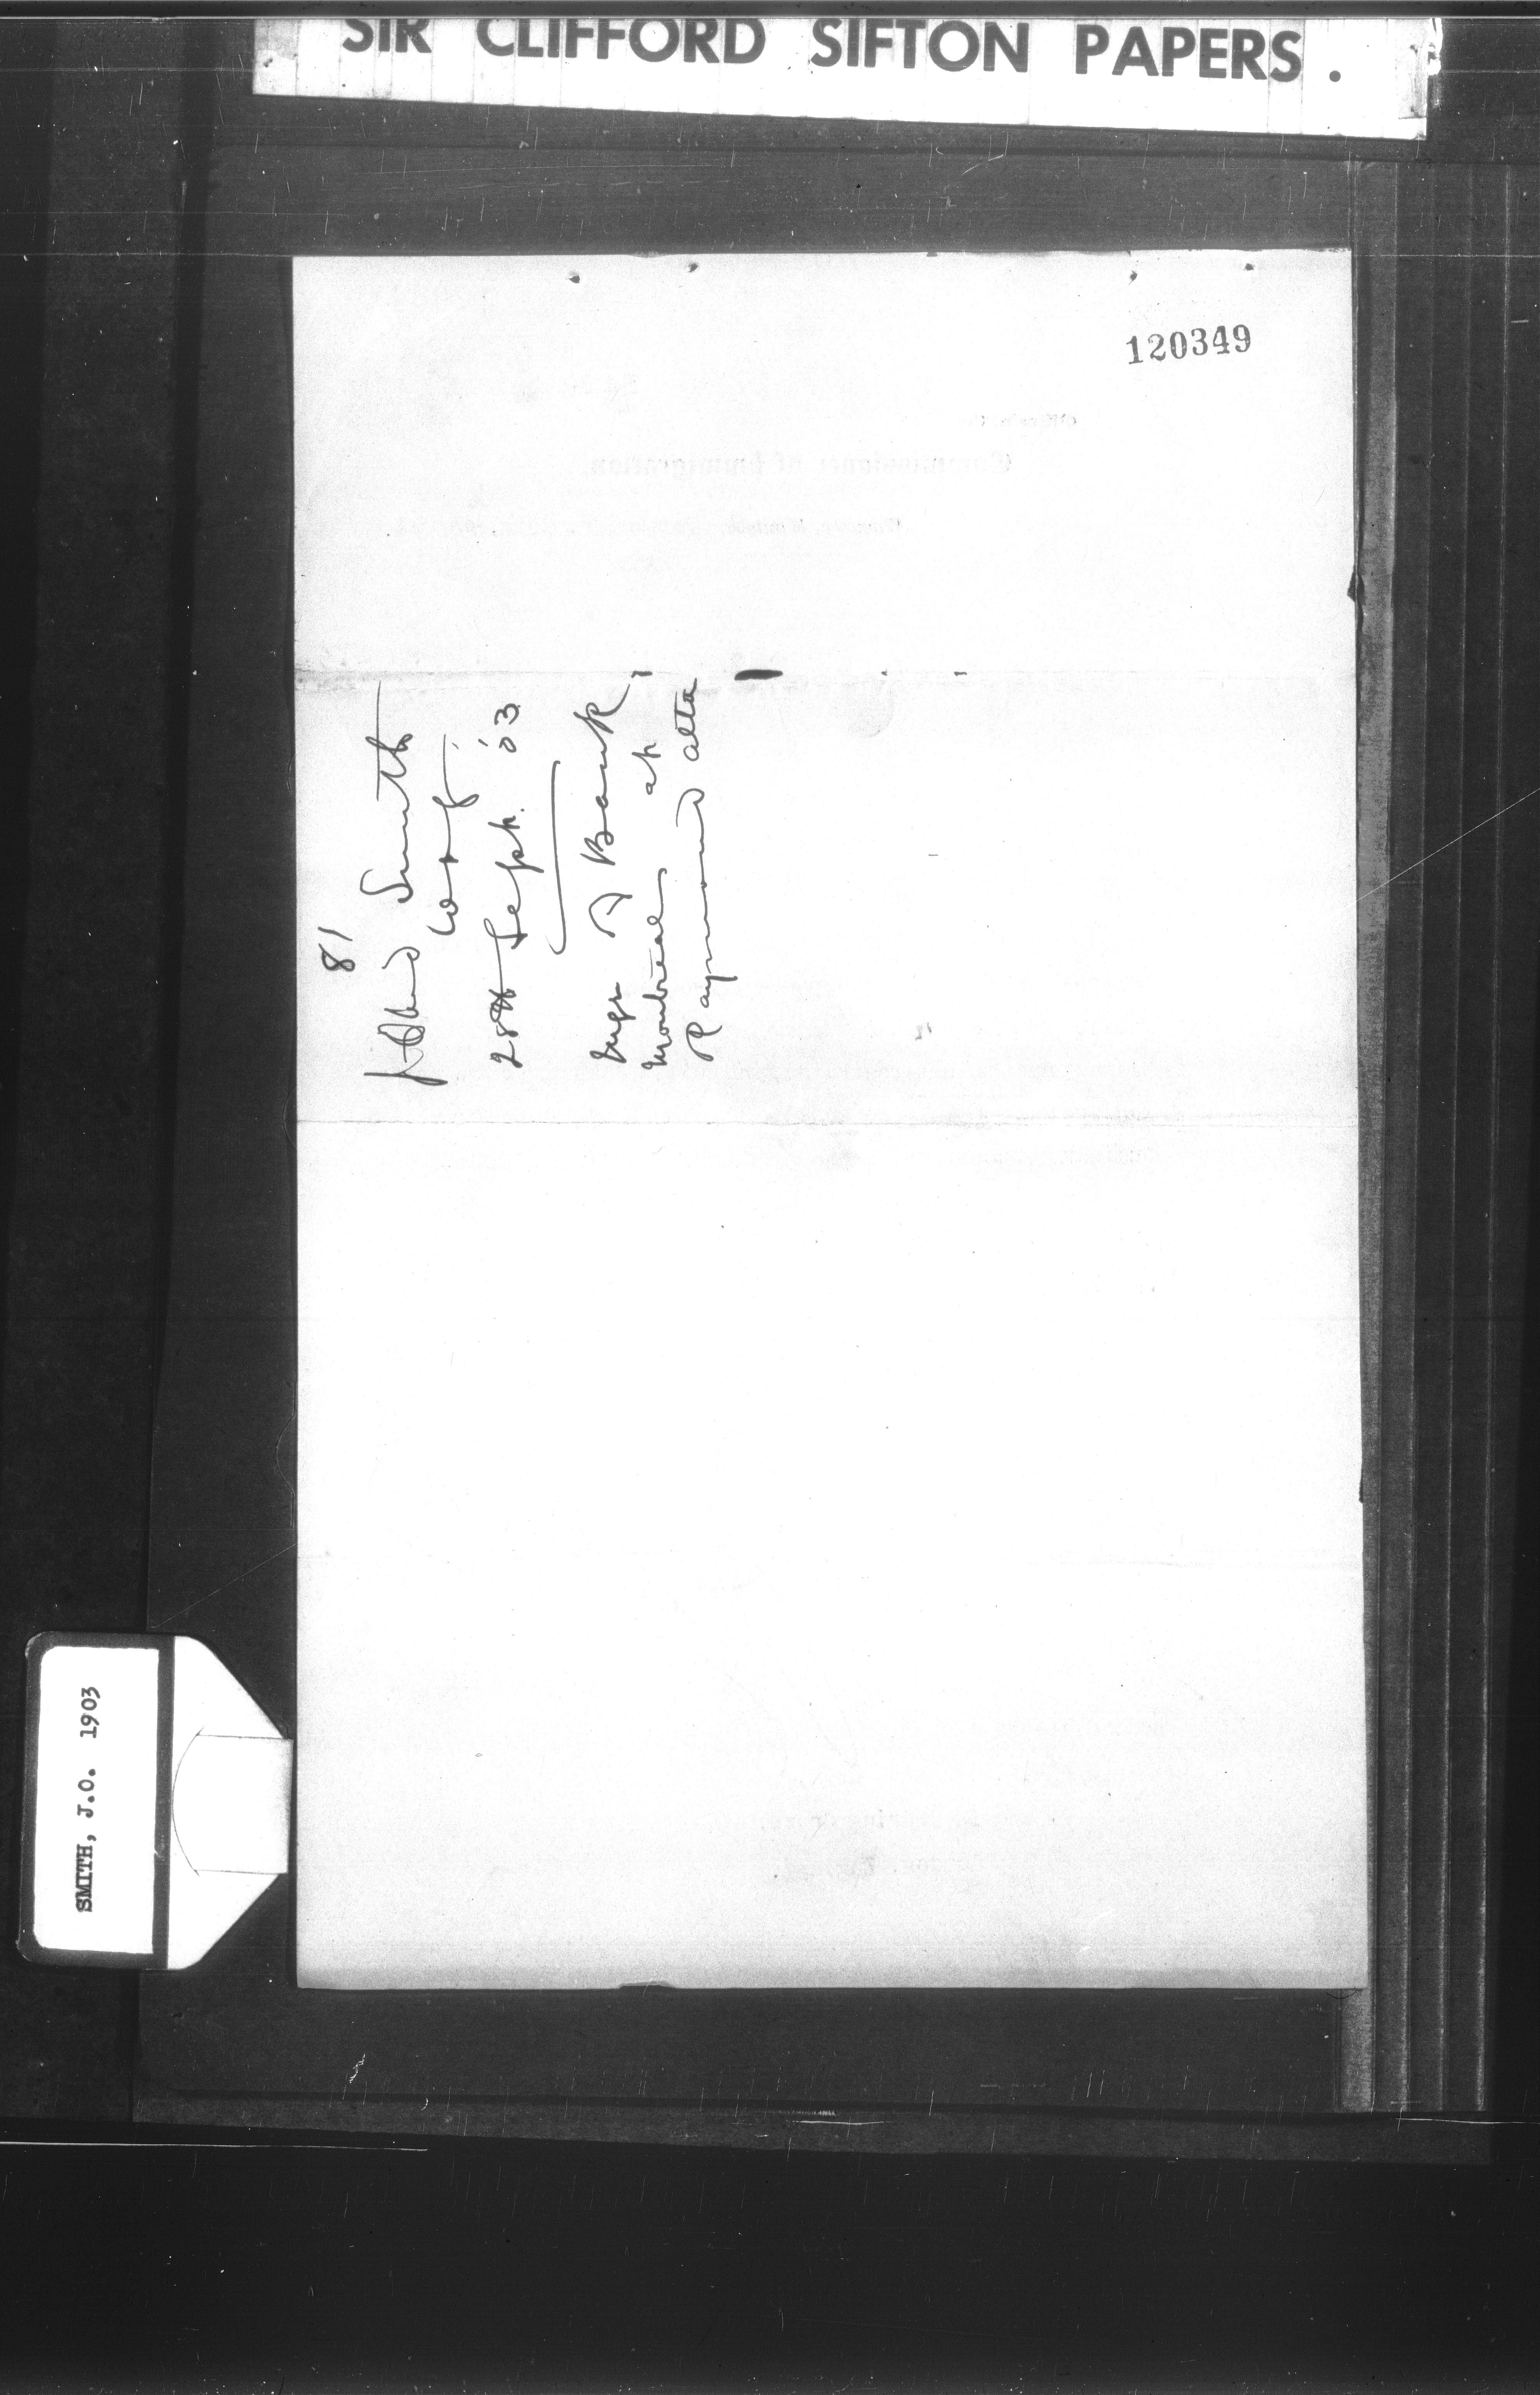 SIR CLIFFORD SIFTON PAPERS.
120349
81
Smith
Wpg.
28th Sept. '03
Mgr Bank
Montreal at
Raymond Alta
SMITH, J.O. 1903